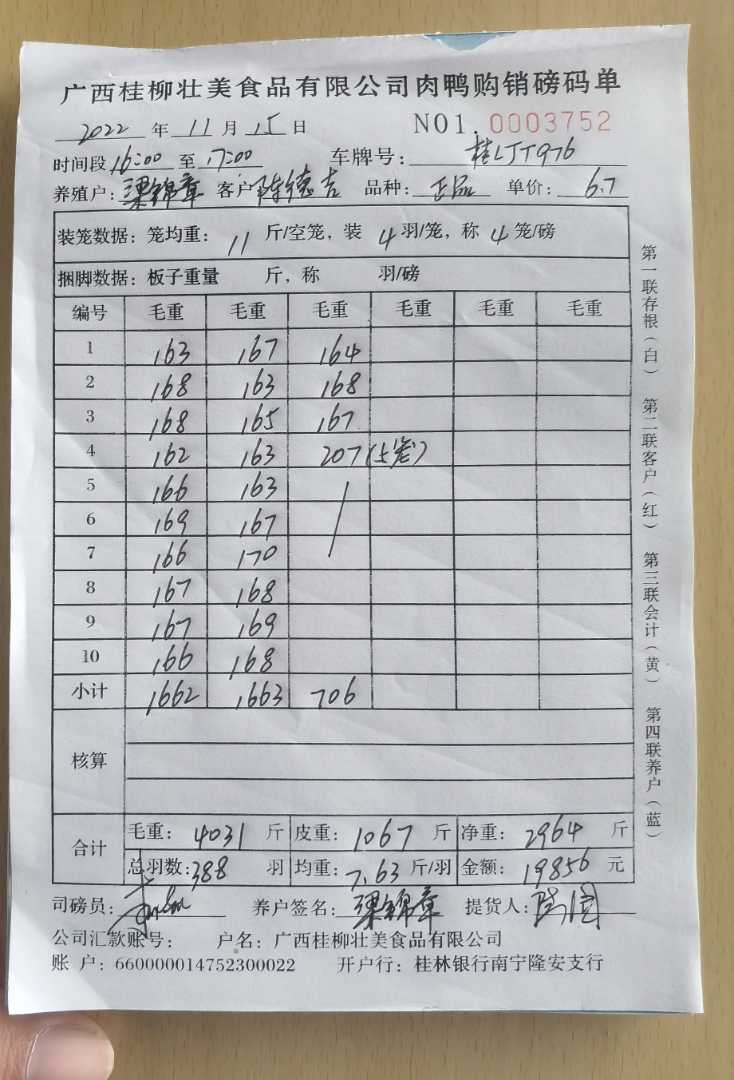 广西桂柳壮美食品有限公司肉鸭购销磅码单
2022 年 11 月 15 日 NO1. 0003752
时间段 16:00 至 17:00 车牌号: 桂LJT976
养殖户: 梁锦章 客户 陈德吉 品种: 正品 单价: 6.7
装笼数据: 笼均重: 11 斤/空笼, 装 4 羽/笼, 称 4 笼/磅
捆脚数据: 板子重量 斤, 称 羽/磅
编号 毛重 毛重 毛重 毛重 毛重 毛重
1 163 167 164
2 168 163 168
3 168 165 167
4 162 163 207 (5笼)
5 166 163
6 169 167
7 166 170
8 167 168
9 167 169
10 166 168
小计 1662 1663 706
核算
合计 毛重: 4031 斤 皮重: 1067 斤 净重: 2964 斤
总羽数: 388 羽 均重: 7.63 斤/羽 金额: 19856 元
司磅员: 养户签名: 梁锦章 提货人:
公司汇款账号: 户名: 广西桂柳壮美食品有限公司
账 户: 660000014752300022 开户行: 桂林银行南宁隆安支行
第一联存根(白) 第二联客户(红) 第三联会计(黄) 第四联养户(蓝)